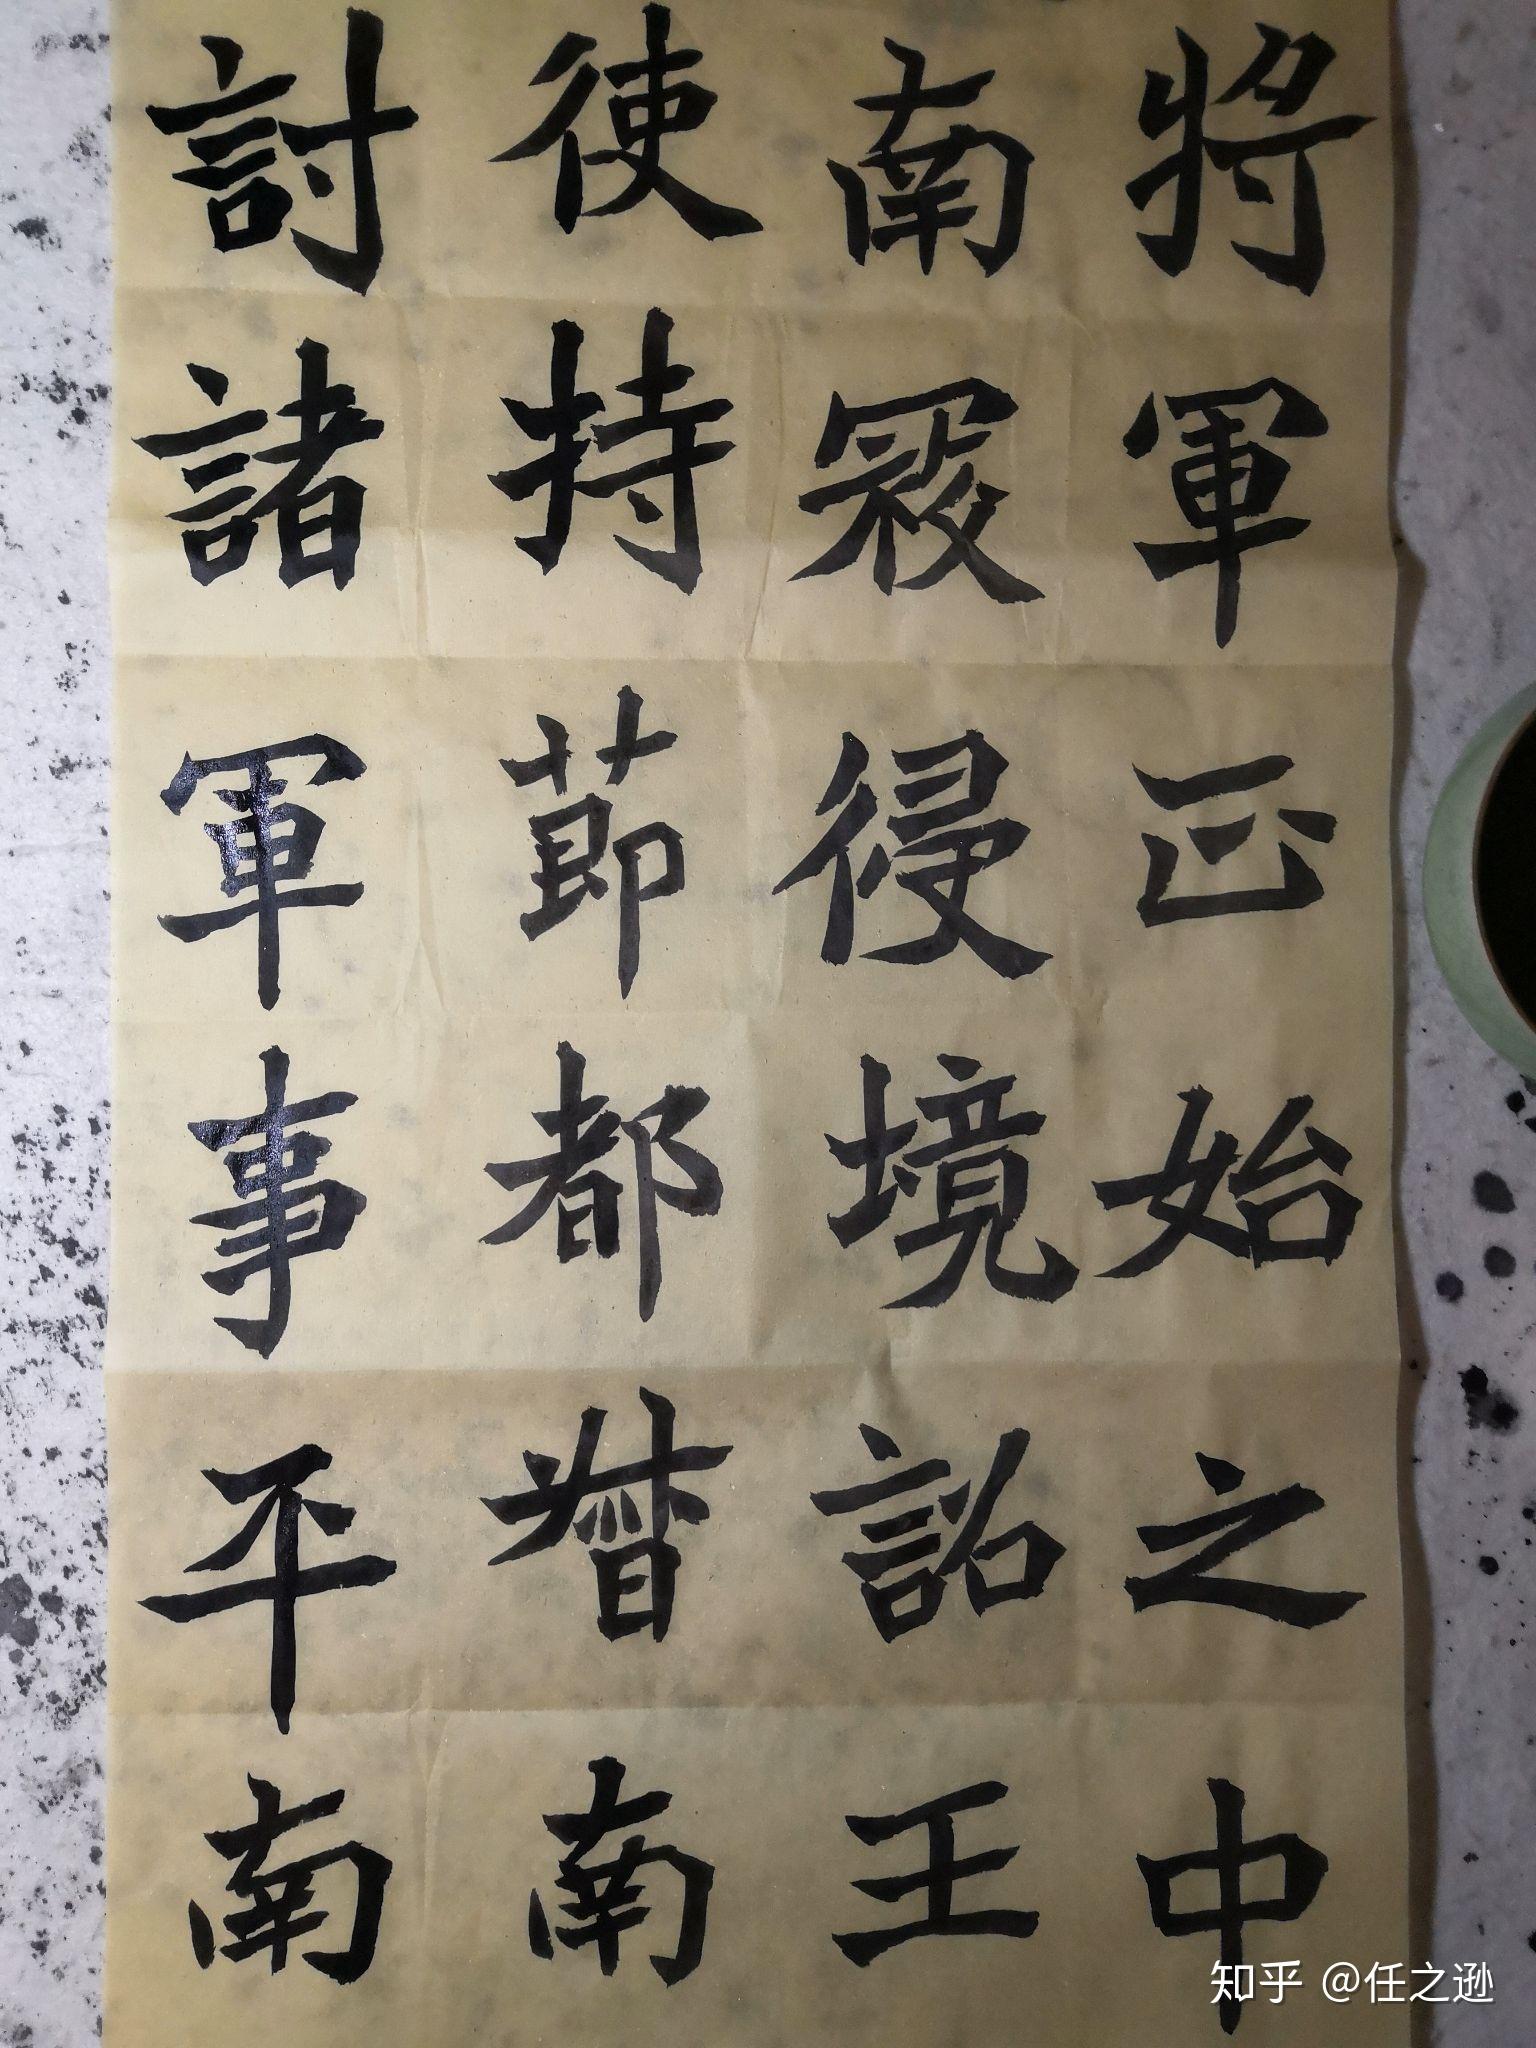 将軍正始之中
南寇侵境詔王
使持莭都督南
討諸軍事平南
知乎 @任之逊